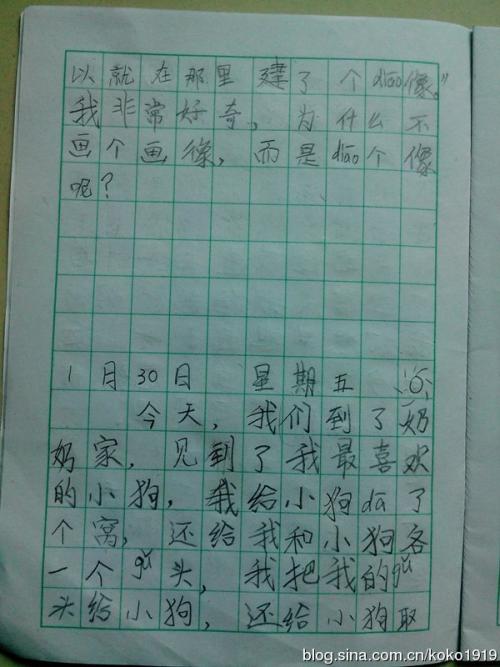 以就在那里建了个diāo像。”
我非常好奇，为什么不
画个画像，而是diāo个像
呢？
1月30日 星期五
今天，我们到了奶
奶家，见到了我最喜欢
的小狗，我给小狗dā了
个窝，还给我和小狗各
一个gǔ头，我把我的gǔ
头给小狗，还给小狗取
blog.sina.com.cn/koko1919